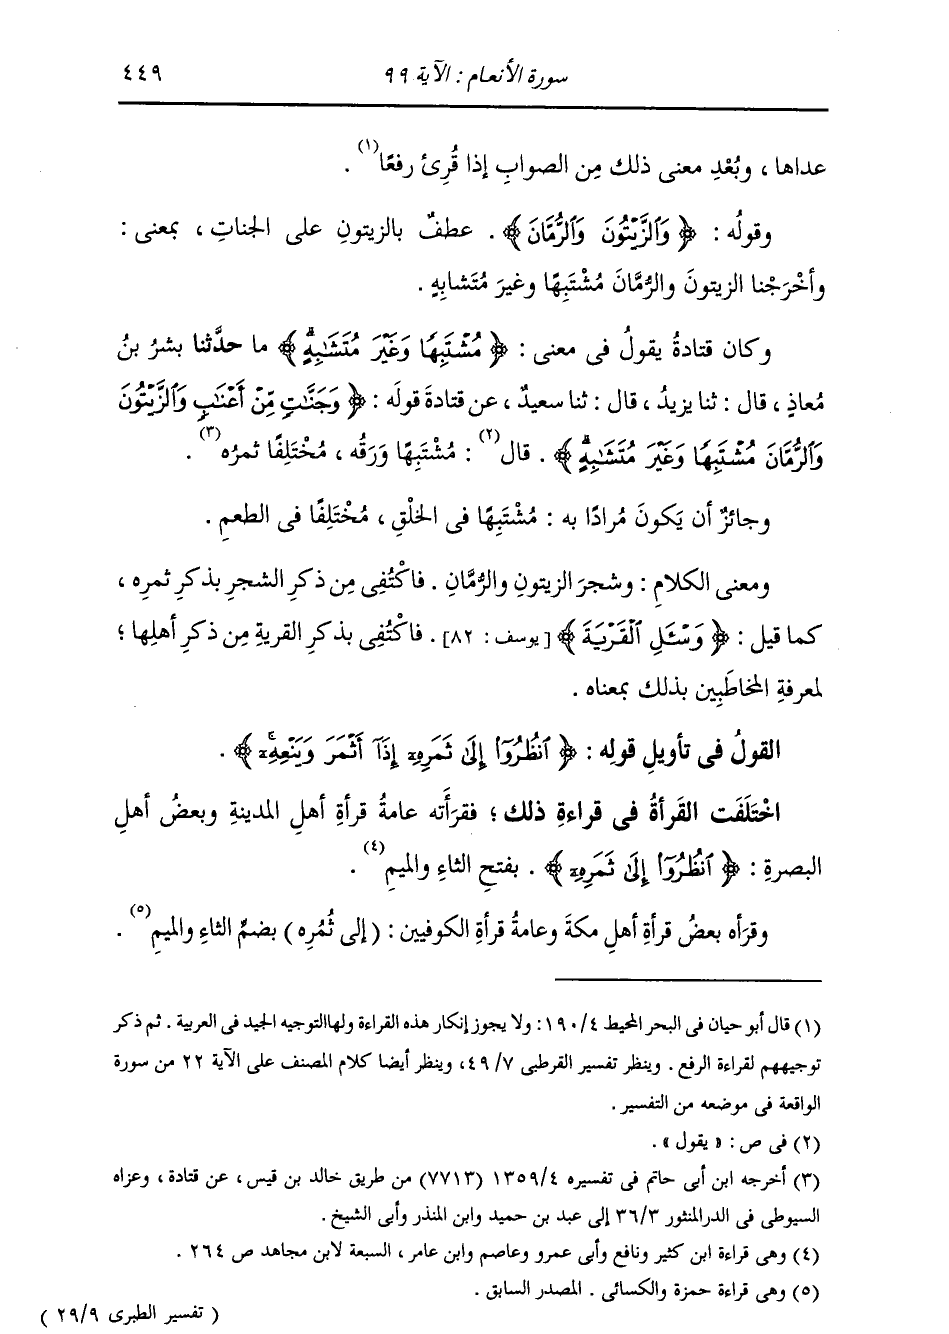 سورة الأنعام : الآية ٩٩ ٤٤٩
عداها ، وبُعْدِ معنى ذلك مِن الصوابِ إذا قُرِئ رفعًا(١) .
وقولُه : ﴿ وَٱلزَّيْتُونَ وَٱلرُّمَّانَ ﴾ . عطفٌ بالزيتونِ على الجناتِ ، بمعنى :
وأخْرَجْنا الزيتونَ والرُّمَّانَ مُشْتَبِهًا وغيرَ مُتَشابِهٍ .
وكان قتادةُ يقولُ فى معنى : ﴿ مُشْتَبِهًا وَغَيْرَ مُتَشَٰبِهٍ ۗ ﴾ ما حدَّثنا بشرُ بنُ
مُعاذٍ ، قال : ثنا يزيدُ ، قال : ثنا سعيدٌ ، عن قتادةَ قولَه : ﴿ وَجَنَّٰتٍ مِّنْ أَعْنَابٍ وَٱلزَّيْتُونَ
وَٱلرُّمَّانَ مُشْتَبِهًا وَغَيْرَ مُتَشَٰبِهٍ ۗ ﴾ . قال(٢) : مُشْتَبِهًا ورَقُه ، مُخْتَلِفًا ثمرُه(٣) .
وجائزٌ أن يَكونَ مُرادًا به : مُشْتَبِهًا فى الخلْقِ ، مُخْتَلِفًا فى الطعمِ .
ومعنى الكلامِ : وشجرَ الزيتونِ والرُّمَّانِ . فاكْتُفِى مِن ذكرِ الشجرِ بذكرِ ثمرِه ،
كما قيل : ﴿ وَسْـَٔلِ ٱلْقَرْيَةَ ﴾ [يوسف : ٨٢] . فاكْتُفِى بذكرِ القريةِ مِن ذكرِ أهلِها ؛
لمعرفةِ المخاطَبِين بذلك بمعناه .
القولُ فى تأويلِ قولِه : ﴿ ٱنظُرُوٓا۟ إِلَىٰ ثَمَرِهِۦٓ إِذَآ أَثْمَرَ وَيَنْعِهِۦٓ ۚ ﴾ .
اخْتَلَفَت القَرأةُ فى قراءةِ ذلك ؛ فقرَأَته عامةُ قرأةِ أهلِ المدينةِ وبعضُ أهلِ
البصرةِ : ﴿ ٱنظُرُوٓا۟ إِلَىٰ ثَمَرِهِۦٓ ﴾ . بفتحِ الثاءِ والميمِ(٤) .
وقرَأه بعضُ قرأةِ أهلِ مكةَ وعامةُ قرأةِ الكوفيين : (إلى ثُمُرِه) بضمِّ الثاءِ والميمِ(٥) .
(١) قال أبو حيان فى البحر المحيط ٤/ ١٩٠: ولا يجوز إنكار هذه القراءة ولهاالتوجيه الجيد فى العربية . ثم ذكر
توجيههم لقراءة الرفع . وينظر تفسير القرطبى ٧/ ٤٩، وينظر أيضا كلام المصنف على الآية ٢٢ من سورة
الواقعة فى موضعه من التفسير .
(٢) فى ص : « يقول » .
(٣) أخرجه ابن أبى حاتم فى تفسيره ٤/ ١٣٥٩ (٧٧١٣) من طريق خالد بن قيس ، عن قتادة ، وعزاه
السيوطى فى الدرالمنثور ٣/ ٣٦ إلى عبد بن حميد وابن المنذر وأبى الشيخ .
(٤) وهى قراءة ابن كثير ونافع وأبى عمرو وعاصم وابن عامر ، السبعة لابن مجاهد ص ٢٦٤ .
(٥) وهى قراءة حمزة والكسائى . المصدر السابق .
( تفسير الطبرى ٢٩/٩ )